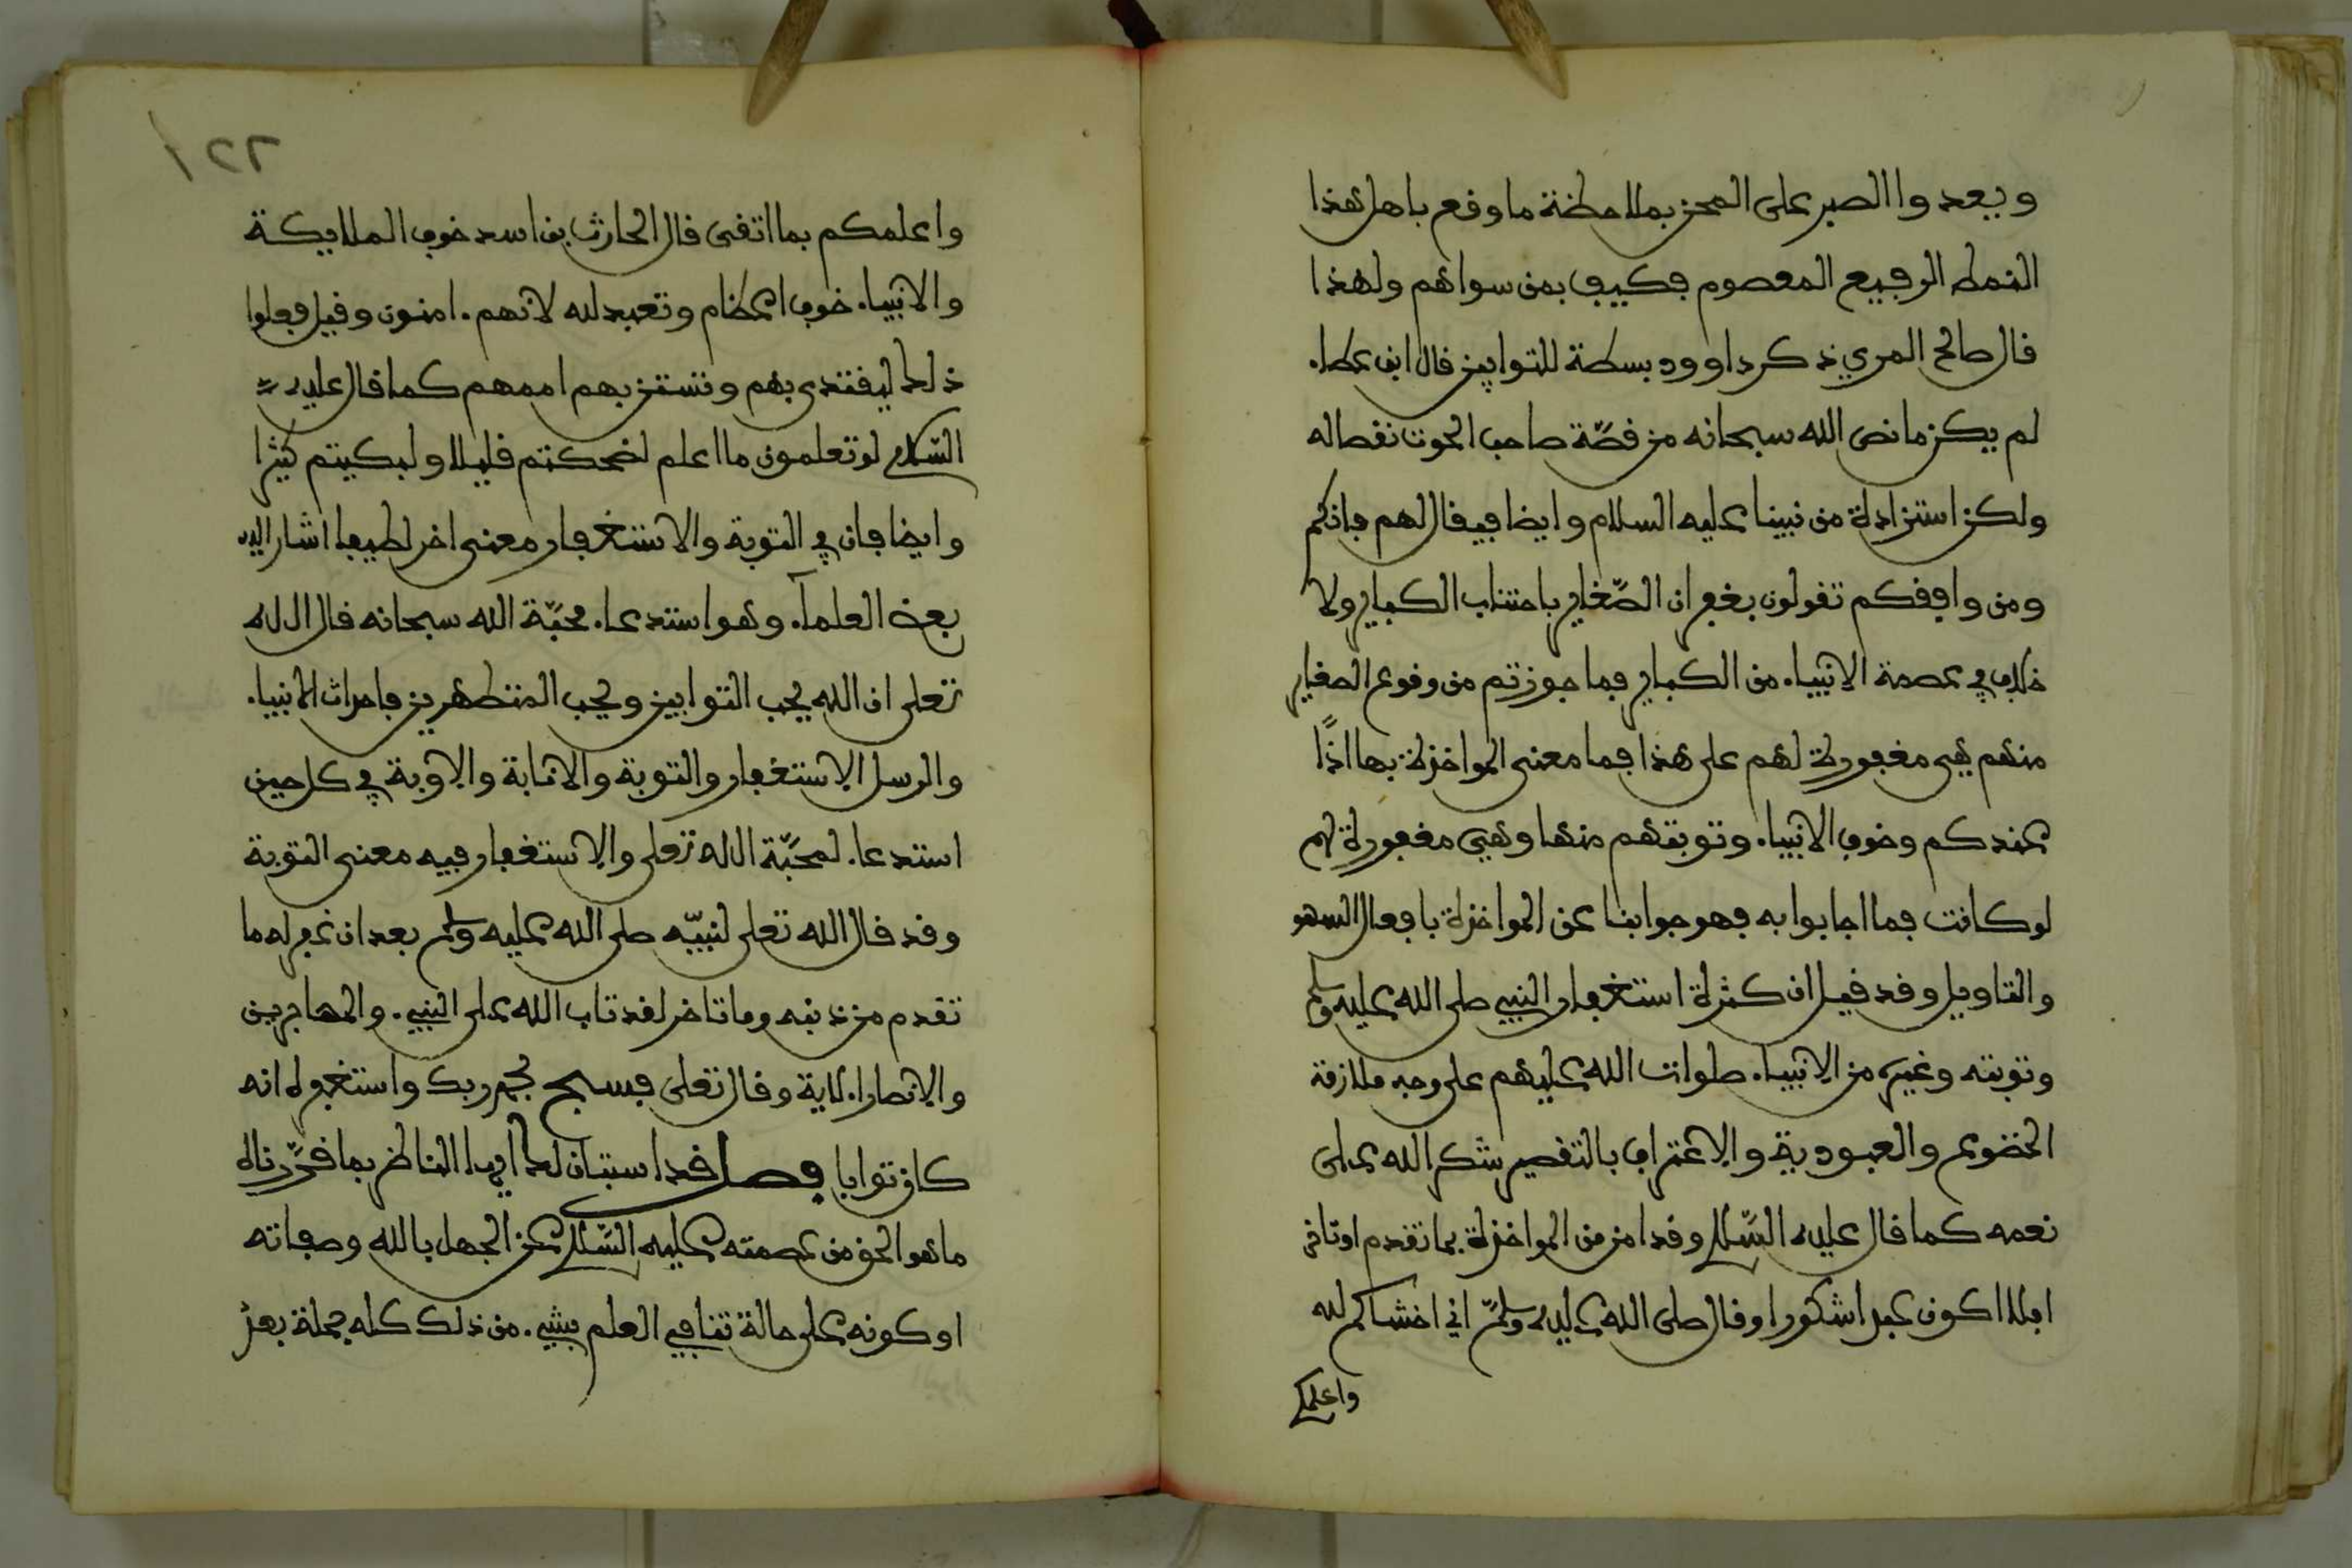 ويعدوا الصبر على المحن بملاحظة ما وقع باهل هذا
النمط الرفيع المعصوم فكيف بمن سواهم ولهذا
قال صالح المري ذكر داوود بسطة للتوابين قال ابن عطاء
لم يكن ما نص الله سبحانه من قصّة صاحب الحوت نقصا له
ولكن استزادة من نبينا عليه السلام وايضا فيقال لهم فانكم
ومن وافقكم تقولون بغفران الصّغاير باجتناب الكباير ولا
خلاف في عصمة الانبياء من الكباير فما جوزتم من وقوع الصغاير
منهم هي مغفورة لهم على هذا فما معنى المواخذة بها اذًا
عندكم وخوف الانبياء وتوبتهم منها وهي مغفورة لهم
لو كانت فما اجابوا به فهو جوابنا عن المواخذة بافعال السهو
والتاويل وقد قيل ان كثرة استغفار النبي صلى الله عليه وسلم
وتوبته وغيره من الانبياء صلوات الله عليهم على وجه ملازمة
الخضوع والعبودية والاعتراف بالتقصير شكرا لله على
نعمه كما قال عليه السّلام وقد امن من المواخذة بما تقدم او تاخر
افلا اكون عبدا شكورا وقال صلى الله عليه وسلّم اني اخشاكم لله
واعلمكم
٢٢١
واعلمكم بما اتقى قال الحارث بن اسد خوف الملايكة
والانبياء خوف اعظام وتعبد لله لانهم امنون وقيل فعلوا
ذلك ليقتدى بهم وتستن بهم اممهم كما قال عليه
السّلام لو تعلمون ما اعلم لضحكتم قليلا ولبكيتم كثيرا
وايضا فان في التوبة والاستغفار معنى اخر لطيفا اشار اليه
بعض العلمآء وهو استدعاء محبّة الله سبحانه قال الله
تعلى ان الله يحب التوابين ويحب المتطهرين فاحداث الانبياء
والرسل الاستغفار والتوبة والانابة والاوبة في كل حين
استدعاء لمحبّة الله تعلى والاستغفار فيه معنى التوبة
وقد قال الله تعلى لنبيّه صلى الله عليه وسلم بعد ان غفر له ما
تقدم من ذنبه وما تاخر لقد تاب الله على النبيء والمهاجرين
والانصار الاية وقال تعلى فسبح بحمد ربك واستغفره انه
كان توابا فصل قد استبان لك ايها الناظر بما قرّرناه
ما هو الحق من عصمته عليه السّلام عن الجهل بالله وصفاته
او كونه على حالة تنافي العلم بشيء من ذلك كله جملة بعد